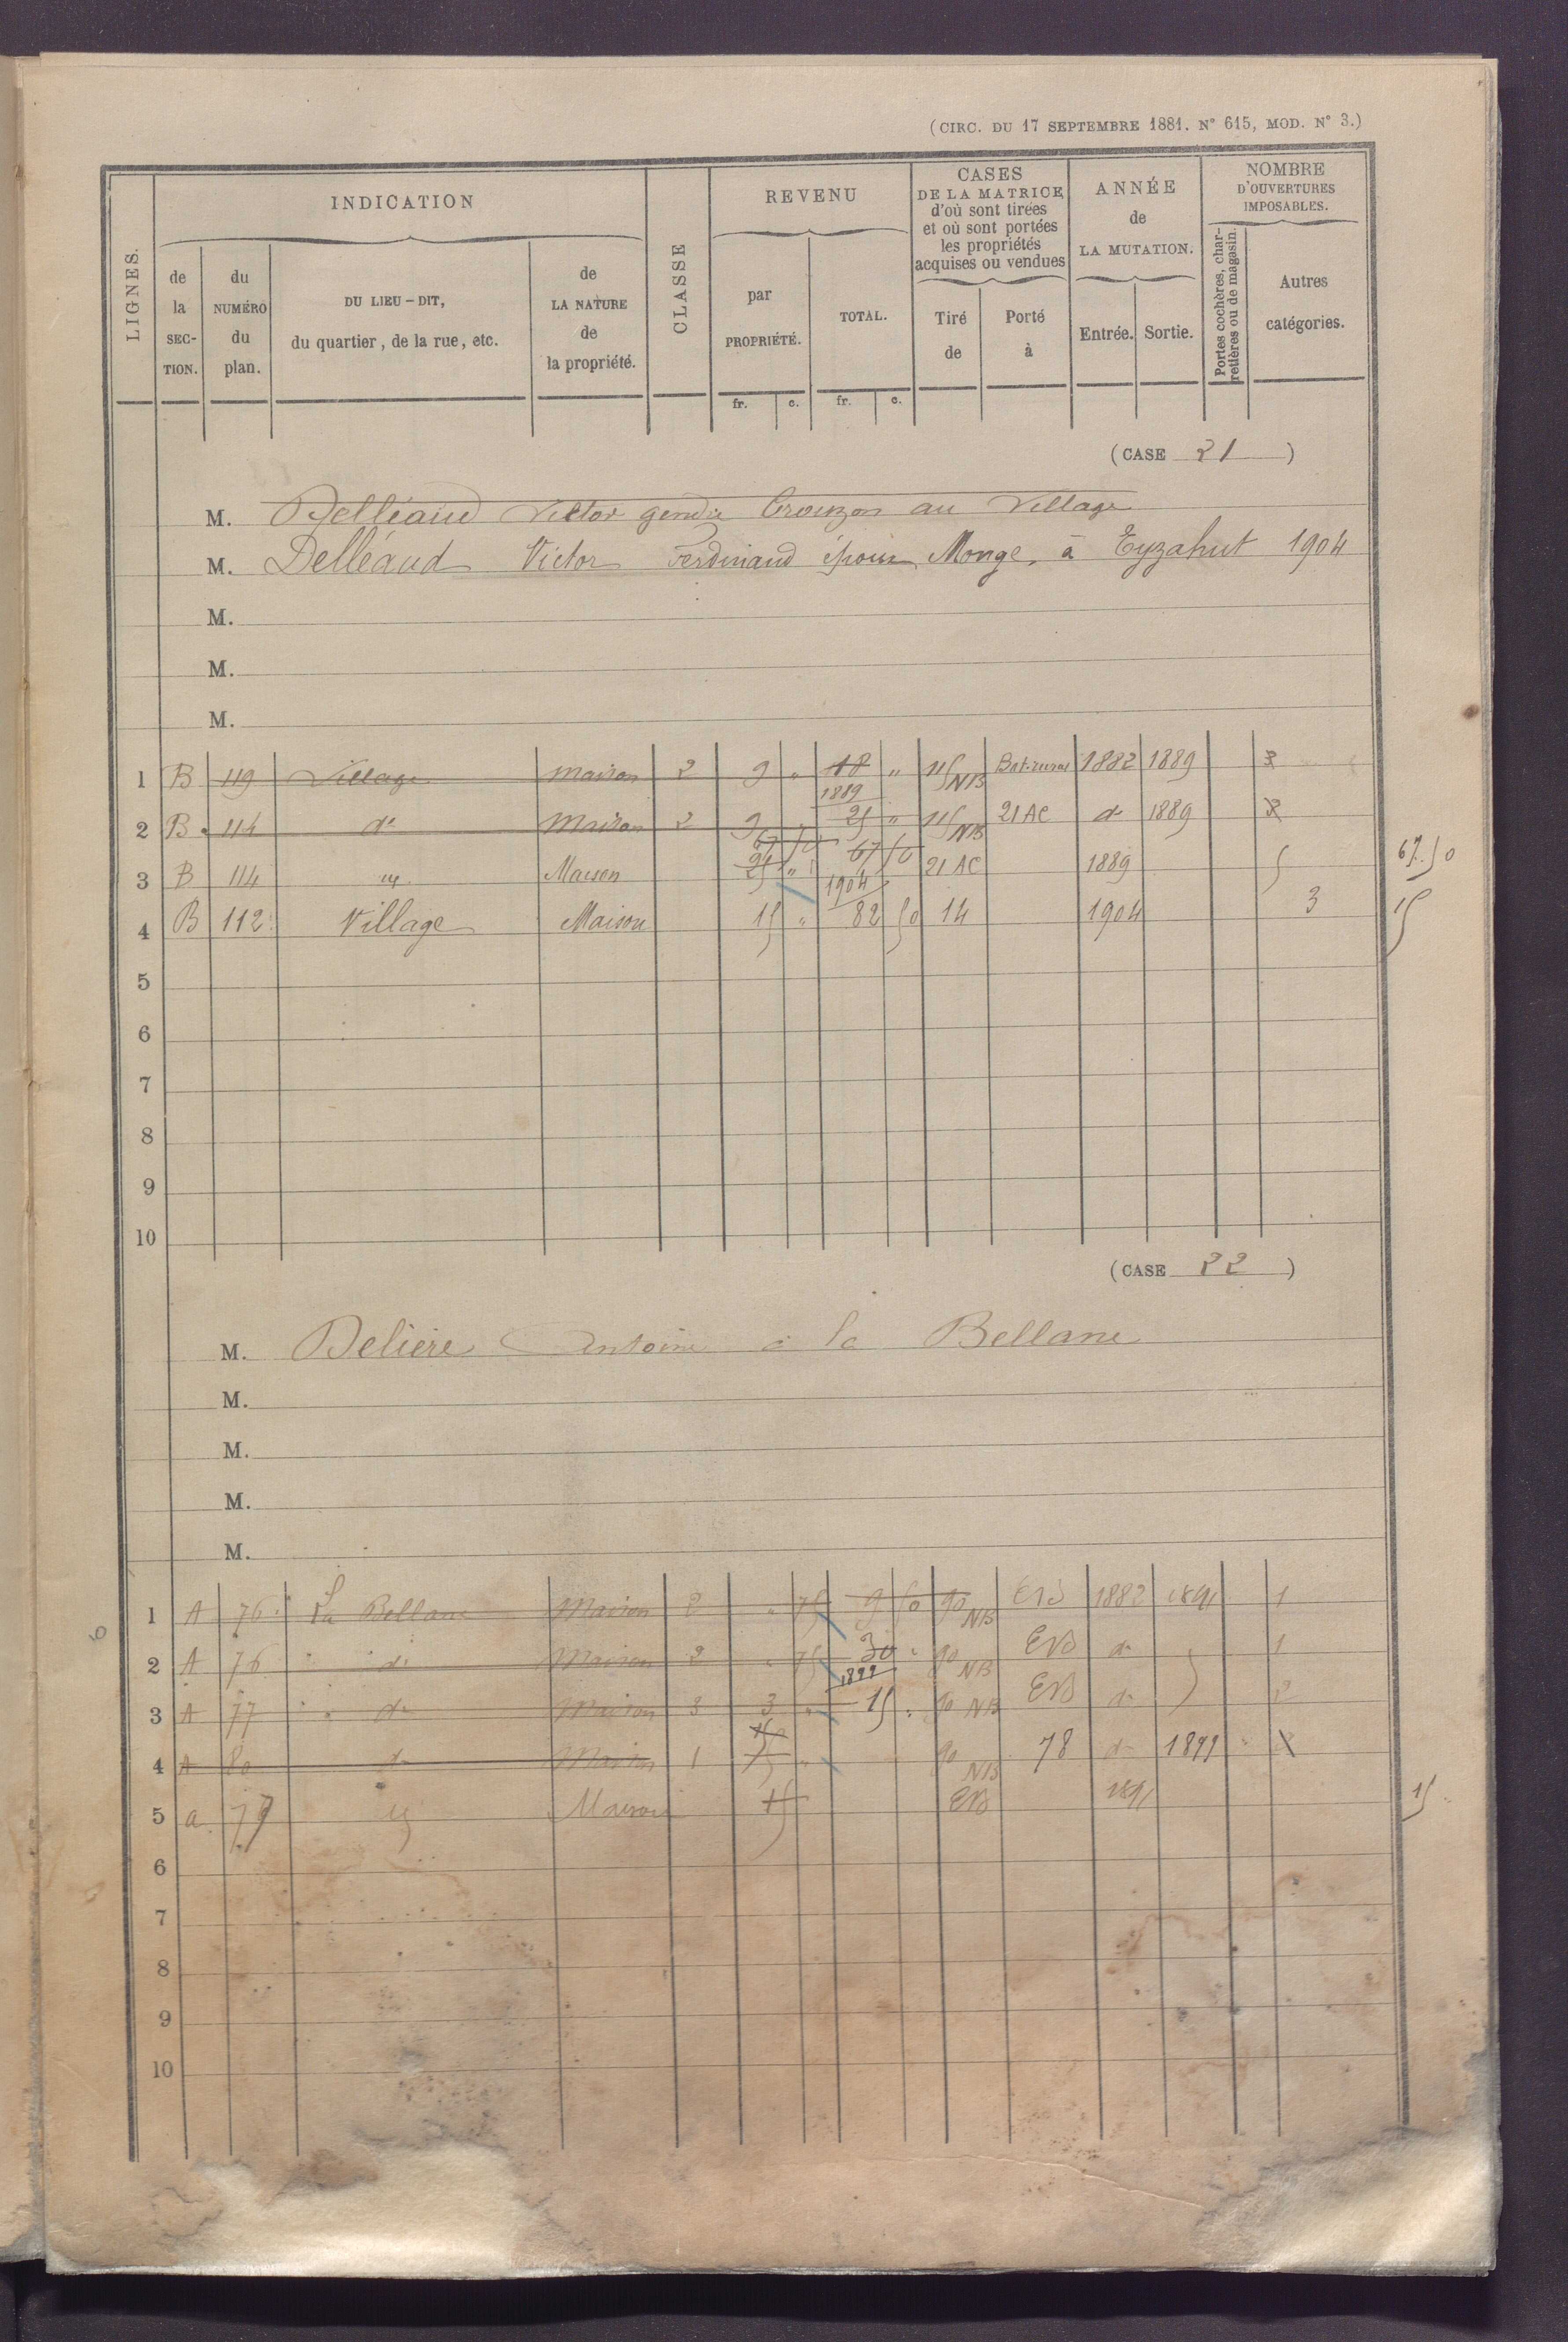 (CIRC. DU 17 SEPTEMBRE 1881. N° 615, MOD. N° 3.)
LIGNES.
INDICATION
de la SECTION.
du NUMÉRO du plan.
DU LIEU-DIT, du quartier, de la rue, etc.
de LA NATURE de la propriété.
CLASSE
REVENU
par PROPRIÉTÉ.
TOTAL.
fr. c. fr. c.
CASES DE LA MATRICE d'où sont tirées et où sont portées les propriétés acquises ou vendues
Tiré de
Porté à
ANNÉE de LA MUTATION.
Entrée. Sortie.
NOMBRE D'OUVERTURES IMPOSABLES.
Portes cochères, charretières ou de magasin.
Autres catégories.
(CASE 21)
M. Delléaud Victor gendre Crouzon au Village
M. Delléaud Victor Ferdinand époux Monge, à Eyzahut 1904
M.
M.
M.
1 B 119 Village Maison 2 9 " 18 " NB Bat. rural 1882 1889
1889
2 B 114 do Maison 2 9 " 25 " NB 21 AC do 1889
67 50
3 B 114 Maison 25 " 67 50 21 AC 1889 5 67.50
1904
4 B 112 Village Maison 15 " 82 50 14 1904 3 15
5
6
7
8
9
10
(CASE 22)
M. Deliere Antoine à la Bellane
M.
M.
M.
M.
1 A 76 La Bellane Maison 2 " 75 9 50 90 NB 1882 1891 1
2 A 76 " do Maison 2 " 75 30 " 90 NB do 1
1899
3 A 77 " do Maison 3 3 " 15 " 90 NB do 2
4 A 80 do Maison 1 " 90 NB 78 do 1899
5 a 79 Maison 15 1891 15
6
7
8
9
10
6